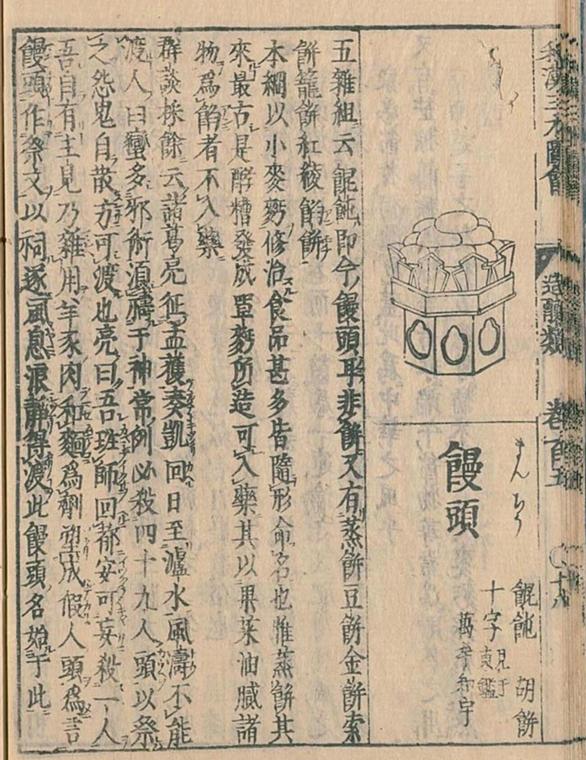 和漢三才圖會 造釀類 卷百五 〇十八
まんぢう
饅頭
餛飩 胡餅
十字
五雜組云餛飩即今饅頭耳非餅又有蒸餅豆餅金餅索
餅籠餅紅綾餅
本綱以小麥麪修治食品甚多皆隨形命名也惟蒸餅其
來最古是酵糟發成單麪所造可入藥其以果菜油膩諸
物爲餡者不入藥
群談採餘云諸葛亮征孟獲奏凱回日至瀘水風濤不能
渡人曰蠻多邪術須禱于神常例必殺四十九人頭以祭
之怨鬼自散方可渡也亮曰吾班師回都安可妄殺一人
吾自有主見乃雜用羊豕肉和麵爲劑塑成假人頭爲言
饅頭作祭文以祠逐風息浪靜得渡此饅頭名始于此